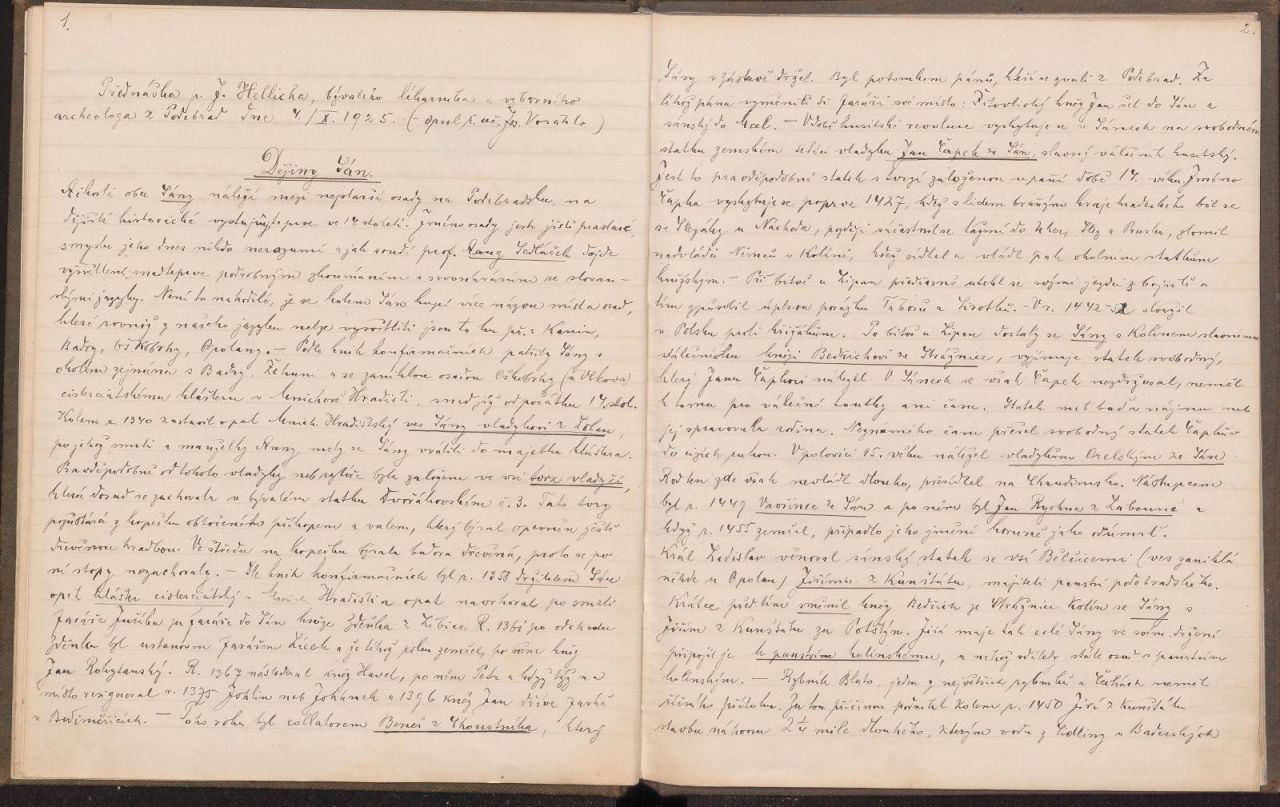 1.
Přednáška p. J. Hellicha, bývalého lékárníka a výborného
archeologa z Poděbrad dne 4./X. 1925. (– opsal p. uč. Jos. Vorahlo)
Dějiny Sán.
obec Sány náleží mezi nejstarší osady na Poděbradsku, na
dějiště historické vystupuje teprve ve 14. století. Jméno osady jest jistě prastaré,
smyslu jeho dnes nikdo nerozumí a jak soudí prof. Aug. Sedláček dojde
vysvětlení snad teprve podrobným zkoumáním a srovnáváním se slovan-
skými jazyky. Není to náhodilé, že se kolem Sán kupí více názvů míst a osad,
které rovněž z našeho jazyku nelze vysvětliti jsou to ku př.: Kanín,
Badry, Oškobrhy, Opolany. – Podle knih konfirmačních patřily Sány s
okolím zejména s Badry, Žehuní a se zaniklou osadou Oškobrhy (a Vlkova)
cisterciátskému klášteru v Mnichově Hradišti, snad již od počátku 14. stol.
Kolem r. 1340 zastavil opat Mnich. Hradišťský ves Sány vladykovi z Dolan,
po jehož smrti a manželky Anny měly se Sány vrátiti do majetku kláštera.
Pravděpodobně od tohoto vladyky neb rytíře byla založena ve vsi tvrz vladyčí,
která dosud se zachovala v bývalém statku Dvořákovském č. 3. Tato tvrz
pozůstává z kopečku obtočeného příkopem a valem, který býval opevněn ještě
dřevěnou hradbou. Ve středu na kopečku bývala budova dřevěná, proto se po
ní stopy nezachovaly. – Dle knih konfirmačních byl r. 1358 držitelem Sán
opět klášter cisterciátský z Mnich. Hradiště a opat navrhoval po smrti
faráře Ješíka za faráře do Sán kněze Zdeňka z Libice. R. 1361 po odchodu
Zdeňka byl ustanoven farářem Lüch a je týž rok zemřel, po něm kněz
Jan Rokytanský. R. 1367 následoval kněz Havel, po něm Petr a když týž na
místo resignoval r. 1375 Johlin neb Johánek a 1396 kněz Jan dříve farář
v Budiměřicích. – toho roku byl collatorem Beneš z Choustníka, který
2.
Sány v zástavě držel. Byl potomkem pánů, kteří se zvali z Poděbrad. Za
téhož pána vyměnili si faráři své místo: Žitovlický kněz Jan šel do Sán a
sánský do Žitovlic. – V době husitské revoluce vyskytuje se v Sánech na svobodném
statku zemském sídlící vladyka Jan Čapek ze Sán, slavný válečník husitský.
Jest to pravděpodobně statek s tvrzí založenou v pání době 14. věku. Jméno
Čapka vyskytuje se poprvé 1427, když s lidem branným kraje hradeckého bil se
se Slezáky u Náchoda, později súčastnil se tažení do Uher, Slez a Pruska, zlomil
nadvládu Němců v Kolíně, kdež sídlel a vládl pak okolním statkům
kněžským. – Při bitvě u Lipan předčasně utekl se svojí jezdou z bojiště a
tím způsobil úplnou porážku Táborů a Sirotků. V r. 1442 sloužil
v Polsku proti křižákům. Po bitvě u Lipan dostaly se Sány s Kolínem slavnému
válečníku knězi Bedřichovi ze Strážnice, vyjímaje statek svobodný,
který Janu Čapkovi náležel. V Sánech se však Čapek nezdržoval, neměl
k tomu pro válečné toulky ani času. Statek měl buď v nájmu neb
jej spravovala rodina. Neznámého času přešel svobodný statek Čapkův
do cizích rukou. V polovici 15. věku náležel vladykům Orelským ze Sán.
Rod ten zde však nevládl dlouho, přesídlel na Chrudimsko. Nástupcem
byl r. 1449 Vavřinec ze Sán a po něm byl Jan Rychna z Labouně a
když r. 1455 zemřel, připadlo jeho jmění koruně jako odúmrť.
Král Ladislav věnoval sánský statek se vsí Bělčicemi (ves zaniklá
někde u Opolan) Jiřímu z Kunštátu, majiteli panství poděbradského.
Krátce předtím směnil kněz Bedřich ze Strážnice Kolín se Sány s
Jiřím z Kunštátu za Potštýn. Jiří maje tak celé Sány ve svém držení
připojil je k panstvím kolínskému, a nebyly odděleny stále osud s panstvím
kolínským. – Rybník Blato, jeden z největších rybníků v Čechách neměl
říčního přítoku. Za tou příčinou počal kolem r. 1450 Jiří z Kunštátu
stavbu náhonu 2¼ míle dlouhého, kterým voda z Cidliny u Baderských